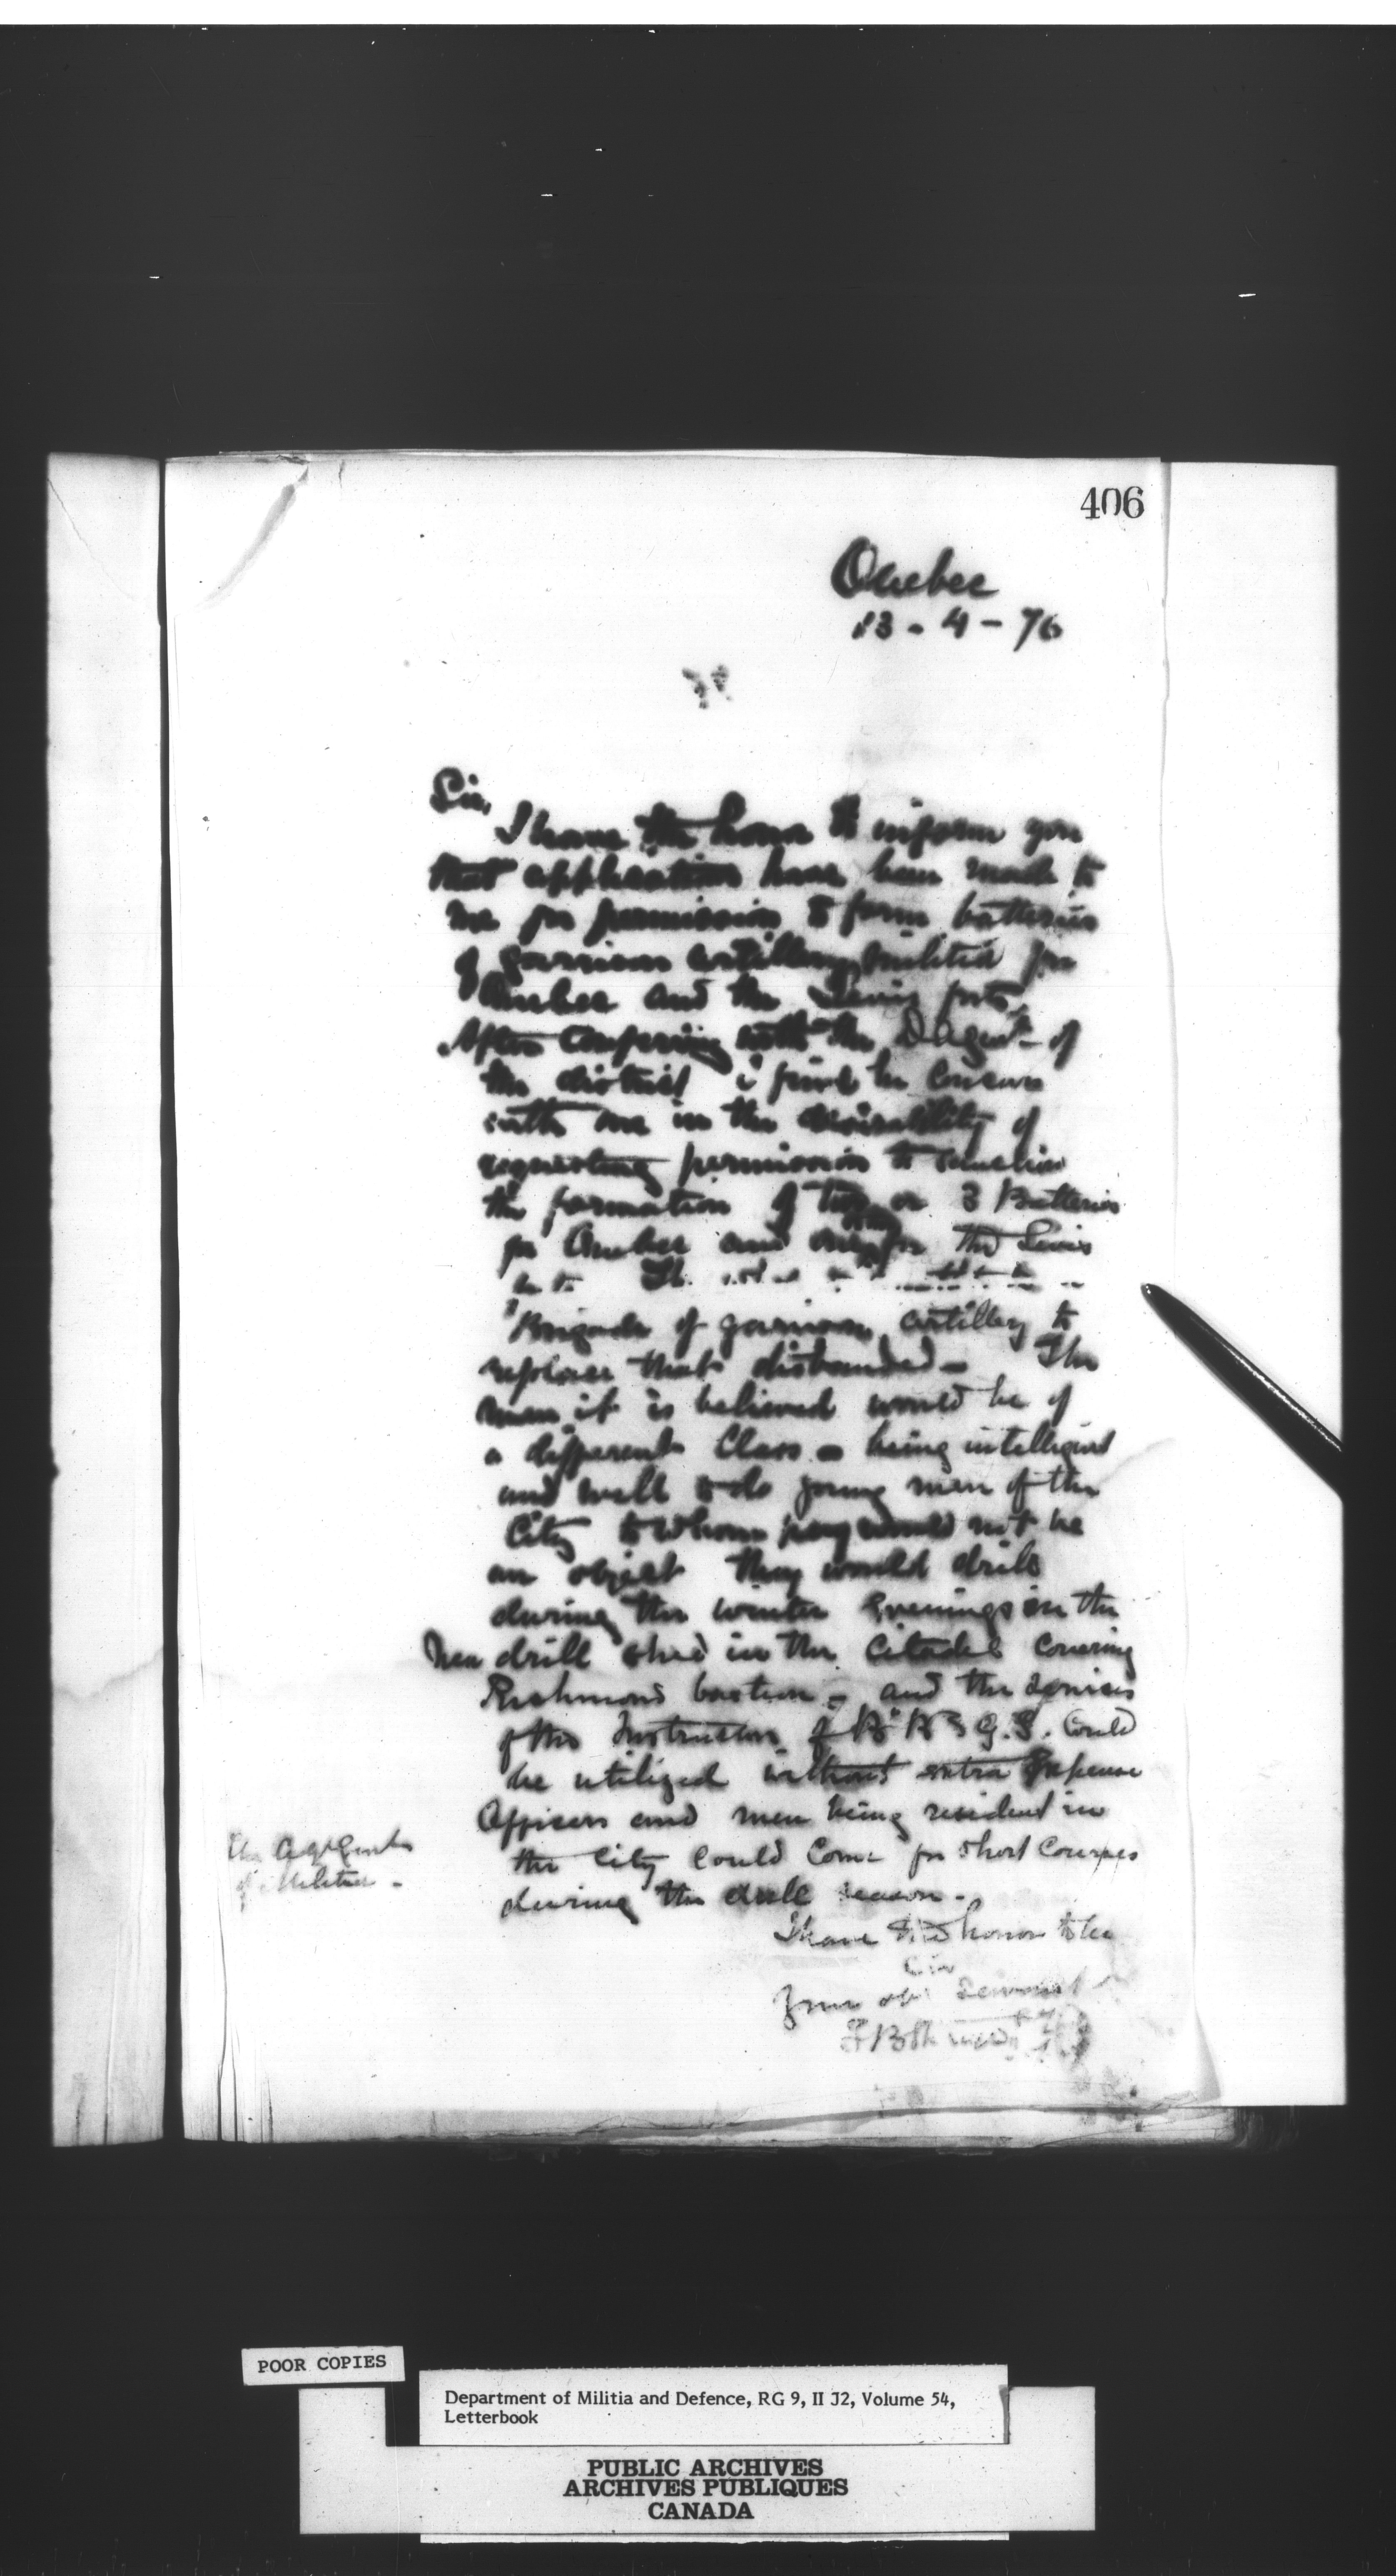 406
Quebec
13 - 4 - 76
Sir,
I have the honor to inform you
that applications have been made to
me for permission to form batteries
of garrison artillery militia for
Quebec and the Levis forts,
After conferring with the D Agent of
the district i find he concurs
with me in the desirability of
requesting permission to sanction
the formation of two or 3 Batteries
for Quebec and one for the Levis
Brigade of garrison artillery to
replace that disbanded - The
men it is believed would be of
a different Class - being intelligent
and well to do young men of the
City to whom pay would not be
an object they would drill
during the winter Evenings in the
New drill shed in the Citadel covering
Richmond bastion - and the services
of the Instructors of B B S G. S. could
be utilized without extra Expense
Officers and men being resident in
the City could Come for short Courses
during the drill season -
I have the honor to be
Sir
Your obt Servant
The Adjt Genl
of Militia -
POOR COPIES
Department of Militia and Defence, RG 9, II J2, Volume 54,
Letterbook
PUBLIC ARCHIVES
ARCHIVES PUBLIQUES
CANADA